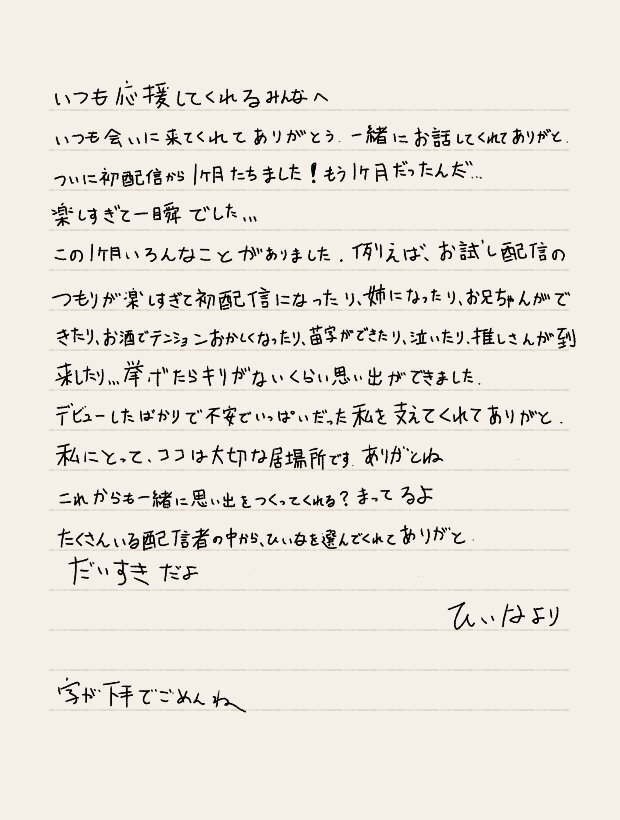 いつも応援してくれるみんなへ
いつも会いに来てくれてありがとう.一緒にお話してくれてありがと.
ついに初配信から1ヶ月たちました!もう1ヶ月だったんだ...
楽しすぎて一瞬でした...
この1ヶ月いろんなことがありました.例えば、お試し配信の
つもりが楽しすぎて初配信になったり、姉になったり、お兄ちゃんがで
きたり、お酒でテンションおかしくなったり、苗字ができたり、泣いたり、推しさんが到
来したり...挙げたらキリがないくらい思い出ができました.
デビューしたばかりで不安でいっぱいだった私を支えてくれてありがと.
私にとって、ココは大切な居場所です.ありがとね
これからも一緒に思い出をつくってくれる?まってるよ
たくさんいる配信者の中から、ひぃなを選んでくれてありがと.
だいすきだよ
ひぃなより
字が下手でごめんね